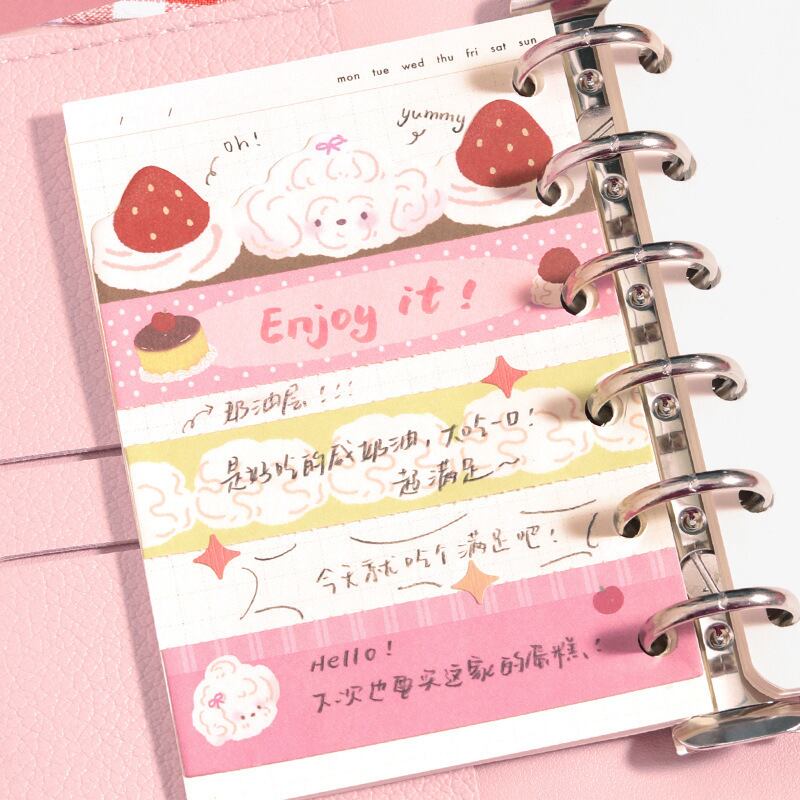 mon tue wed thu fri sat sun
/ /
oh!
yummy
Enjoy it!
奶油层!!!
是好吃的咸奶油,大吃一口!
超满足~
今天就吃个满足吧!
Hello!
下次也要买这家的蛋糕、!